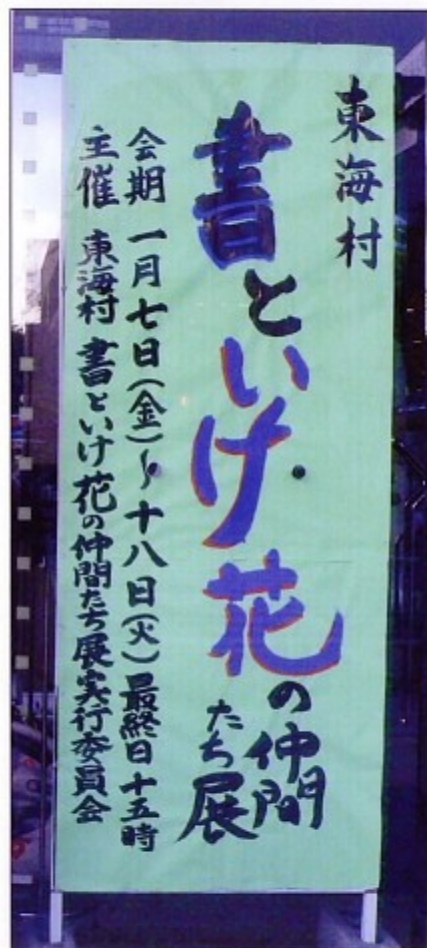 東海村
書といけ花の仲間
たち展
会期 一月七日(金)〜十八日(火)最終日十五時
主催 東海村 書といけ花の仲間たち展実行委員会